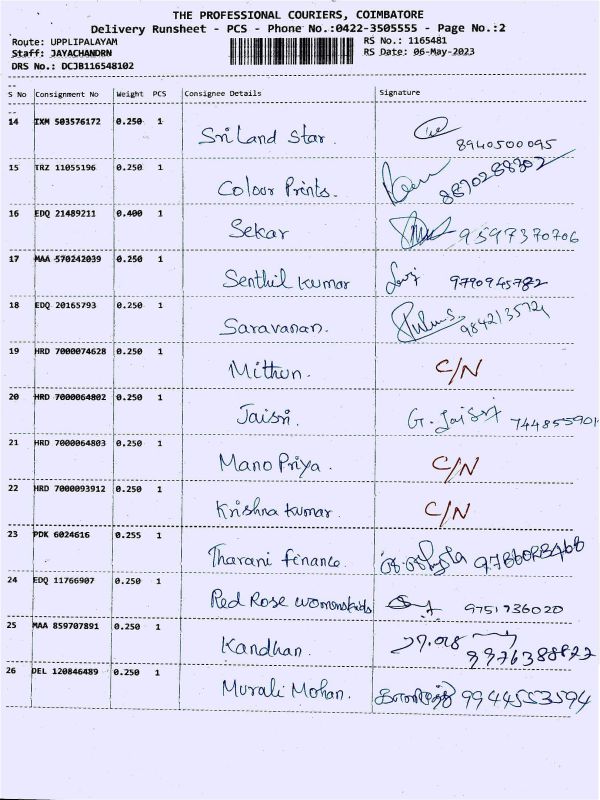 THE PROFESSIONAL COURIERS, COIMBATORE
Delivery Runsheet - PCS - Phone No.:0422-3505555 - Page No.:2
Route: UPPLIPALAYAM RS No.: 1165481
Staff: JAYACHANDRN RS Date: 06-May-2023
DRS No.: DCJB116548102
S No Consignment No Weight PCS Consignee Details Signature
14 IXM 503576172 0.250 1 Sri Land Star. 8940500095
15 TRZ 11055196 0.250 1 Colour Prints. 8870288302
16 EDQ 21489211 0.400 1 Sekar 9597370706
17 MAA 570242039 0.250 1 Senthil kumar 9790945782
18 EDQ 20165793 0.250 1 Saravanan.
19 HRD 7000074628 0.250 1 Mithun. C/N
20 HRD 7000064802 0.250 1 Jaisri. G. Jaisri 7448555901
21 HRD 7000064803 0.250 1 Mano Priya. C/N
22 HRD 7000093912 0.250 1 Krishna kumar. C/N
23 PDK 6024616 0.255 1 Tharani finance.
24 EDQ 11766907 0.250 1 Red Rose womens 9751736020
25 MAA 859707891 0.250 1 Kandhan.
26 DEL 120846489 0.250 1 Murali Mohan. 9944553594